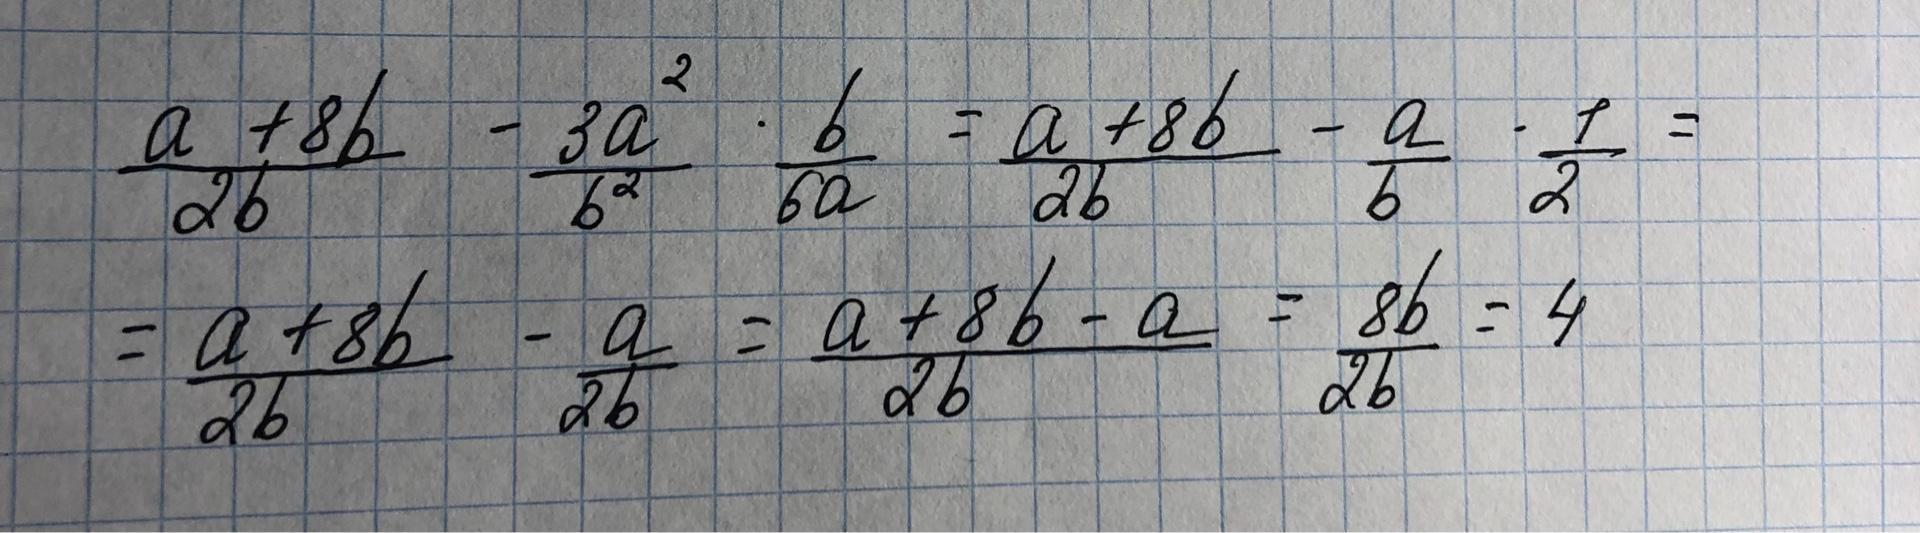 (a + 8b)/(2b) - (3a²)/(b²) · b/(6a) = (a + 8b)/(2b) - a/b · 1/2 =
= (a + 8b)/(2b) - a/(2b) = (a + 8b - a)/(2b) = 8b/(2b) = 4